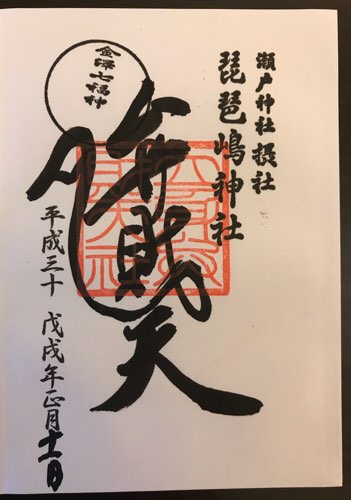 瀬戸神社摂社
琵琶嶋神社
金澤七福神
弁財天
平成三十 戊戌年正月十一日